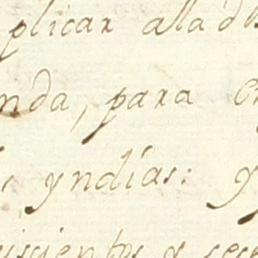 plicar alados
nda, para
yndias: y
iscientos y sese